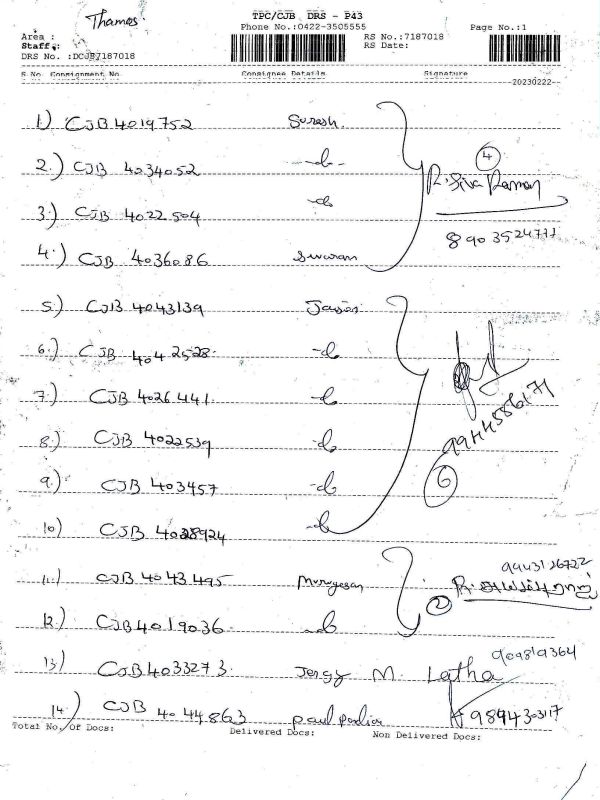 Thomas.
TPC/CJB DRS - P43
Phone No.:0422-3505555
Page No.:1
Area :
Staff :
DRS No. :DCJB7187018
RS No.:7187018
RS Date:
S No. Consignment No. Consignee Details Signature
20230222
1.) CJB 4019752 Suresh.
2.) CJB 4034052 -do-
3.) CJB 4022504 -do
4.) CJB 4036086
④
R. Siva Raman
5.) CJB 4043139
6.) CJB 4042528. -do
7.) CJB 4026441. -do
8.) CJB 4022539 -do
9.) CJB 403457 -do
10) CJB 4028924 -do
9944586171
⑥
11.) CJB 4043495 Murugesan
9943126722
② R.
12.) CJB 4019036 -do
13) CJB 4033273. M. Latha
14) CJB 4044863
9894303117
Total No. Of Docs: Delivered Docs: Non Delivered Docs: